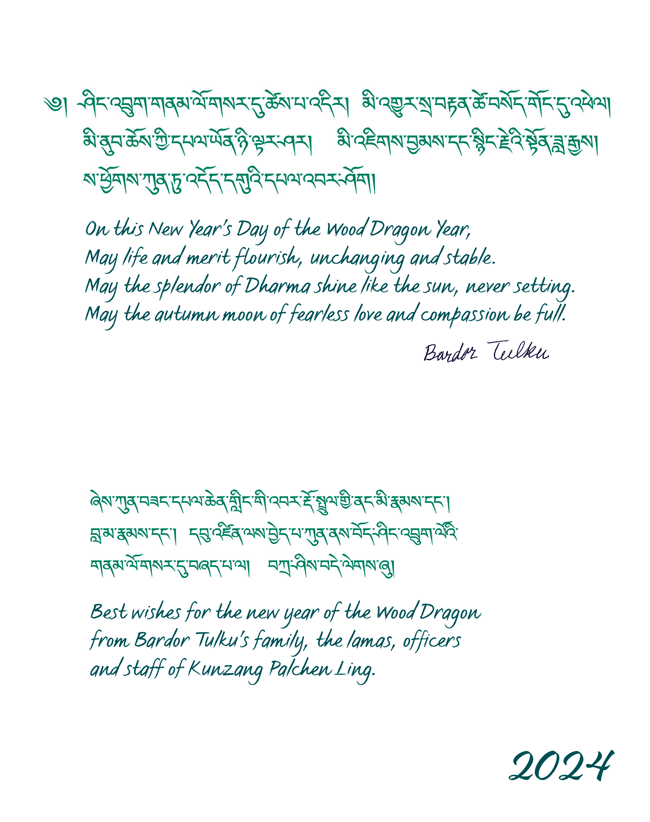 ༄༅། ཤིང་འབྲུག་གནམ་ལོ་གསར་དུ་ཚེས་པ་འདིར། མི་འགྱུར་སྲ་བརྟན་ཚེ་བསོད་གོང་དུ་འཕེལ།
མི་ནུབ་ཆོས་ཀྱི་དཔལ་ཡོན་ཉི་ལྟར་ཤར། མི་འཇིགས་བྱམས་དང་སྙིང་རྗེའི་སྟོན་ཟླ་རྒྱས།
ས་ཕྱོགས་ཀུན་ཏུ་འདོད་དགུའི་དཔལ་འབར་ཤོག།
On this New Year's Day of the Wood Dragon Year,
May life and merit flourish, unchanging and stable.
May the splendor of Dharma shine like the sun, never setting.
May the autumn moon of fearless love and compassion be full.
Bardor Tulku
ཞེས་ཀུན་བཟང་དཔལ་ཆེན་གླིང་གི་འབར་རྡོ་སྤྲུལ་གྱི་ནང་མི་རྣམས་དང་།
བླ་མ་རྣམས་དང་། དབུ་འཛིན་ལས་བྱེད་པ་ཀུན་ནས་བོད་ཤིང་འབྲུག་ལོའི་
གནམ་ལོ་གསར་དུ་བཞད་པ་ལ། བཀྲ་ཤིས་བདེ་ལེགས་ཞུ།
Best wishes for the new year of the Wood Dragon
from Bardor Tulku's family, the lamas, officers
and staff of Kunzang Palchen Ling.
2024